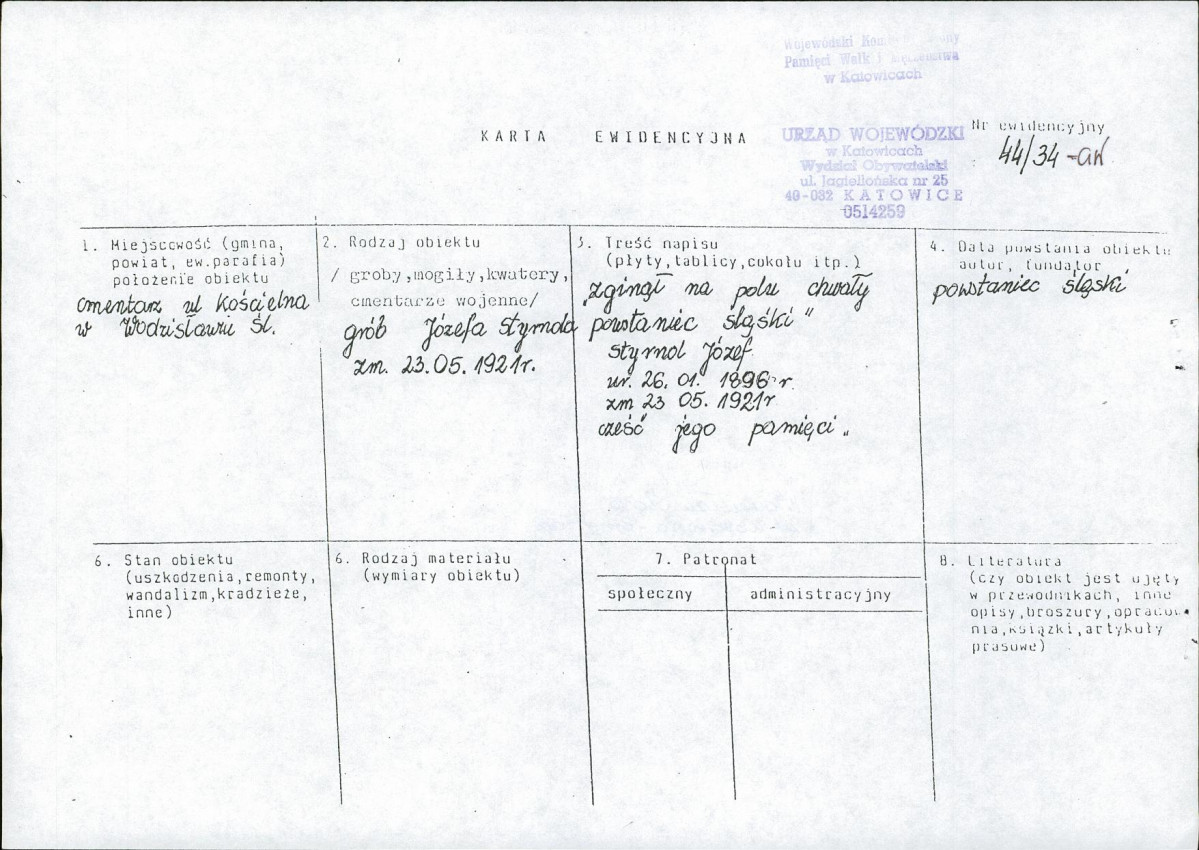 Wojewódzki
Pamięci Walk i
w Katowicach
KARTA EWIDENCYJNA
URZĄD WOJEWÓDZKI
w Katowicach
Wydział Obywatelski
ul. Jagiellońska nr 25
40-032 KATOWICE
0514259
Nr ewidencyjny
44/34 -GW
1. Miejscowość (gmina,
powiat, ew.parafia)
położenie obiektu
cmentarz ul Kościelna
w Wodzisławiu Śl.
2. Rodzaj obiektu
/ groby,mogiły,kwatery,
cmentarze wojenne/
grób Józefa Stymola
zm. 23.05.1921r.
3. Treść napisu
(płyty,tablicy,cokołu itp.)
„zginął na polu chwały
powstaniec śląski"
Stymol Józef
ur. 26. 01. 1896 r
zm 23 05. 1921r
cześć jego pamięci"
4. Data powstania obiektu
autor, fundator
powstaniec śląski
6. Stan obiektu
(uszkodzenia,remonty,
wandalizm,kradzieże,
inne)
6. Rodzaj materiału
(wymiary obiektu)
7. Patronat
społeczny administracyjny
8. Literatura
(czy obiekt jest ujęty
w przewodnikach, inne
opisy,broszury,opracow
nia,książki,artykuły
prasowe)